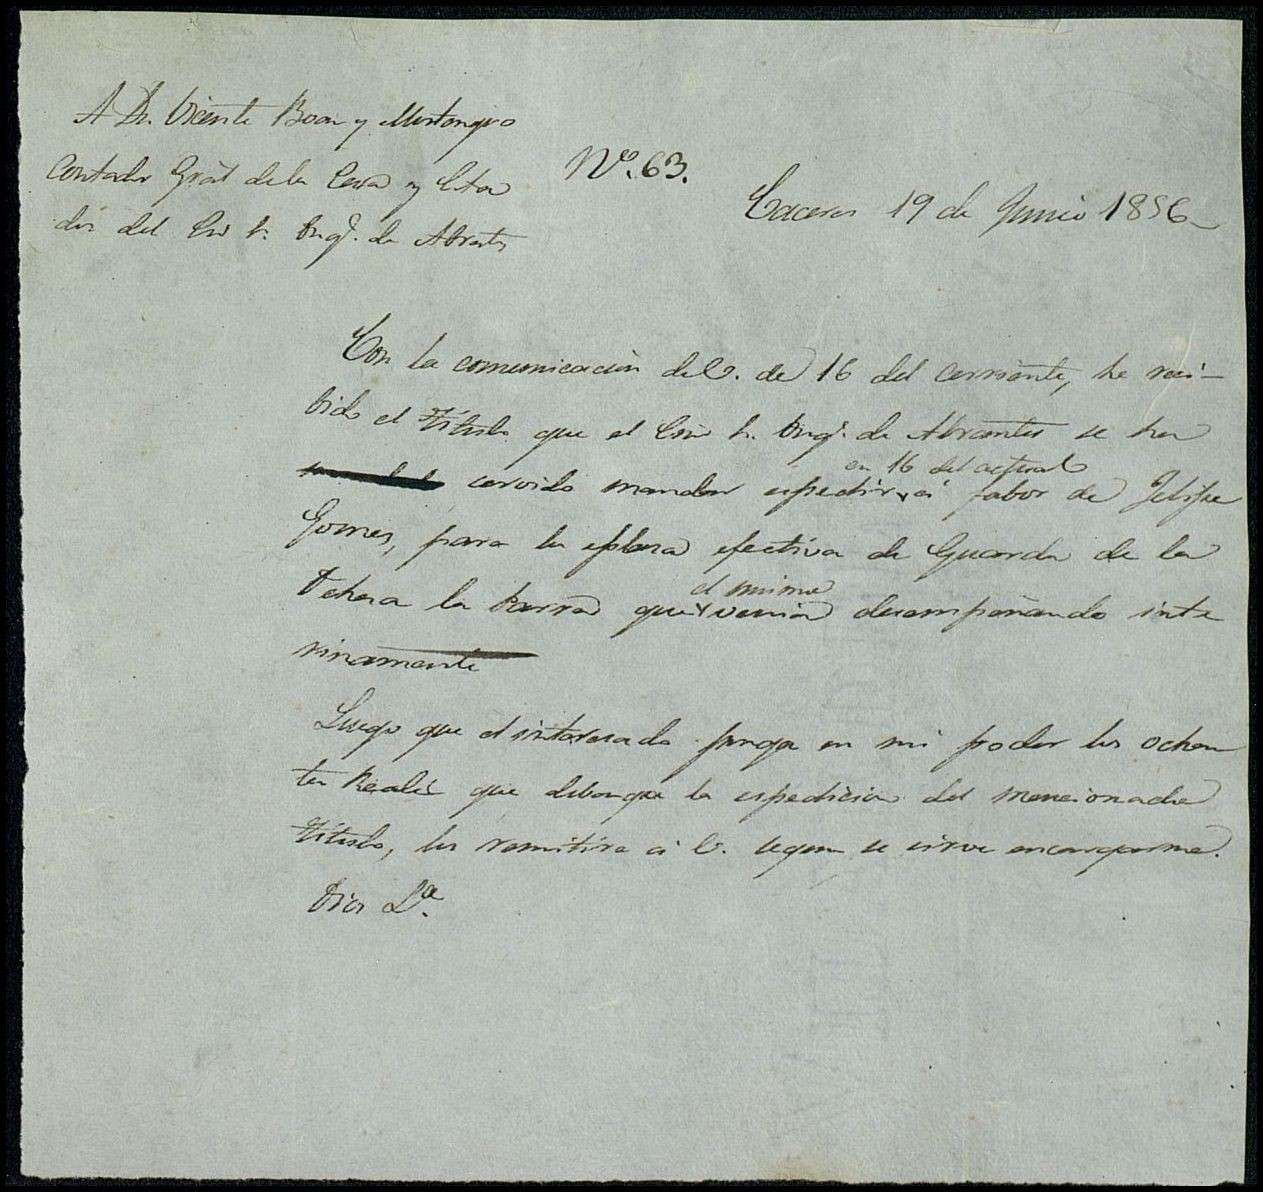 A Dn. Vicente Boan y Mostongro
Contador Gral de la Casa y Esta
dos del Exmo Sr. Duq.e de Abrantes
Nº. 63.
Caceres 19 de Junio 1856
Con la comunicacion de V. de 16 del corriente, he reci-
bido el título que el Exmo Sr. Duq.e de Abrantes se ha
servido mandar espedir en 16 del actual á fabor de Felipe
Gomes, para la plasa efectiva de Guarda de la
Dehesa la Parra que el mismo venia desempeñando inte
rinamente
Luego que el interesado ponga en mi poder los ochen
ta Reales que debenga la espedicion del mencionado
título, los remitire á V. segun se sirve encargarme.
Dios &a.